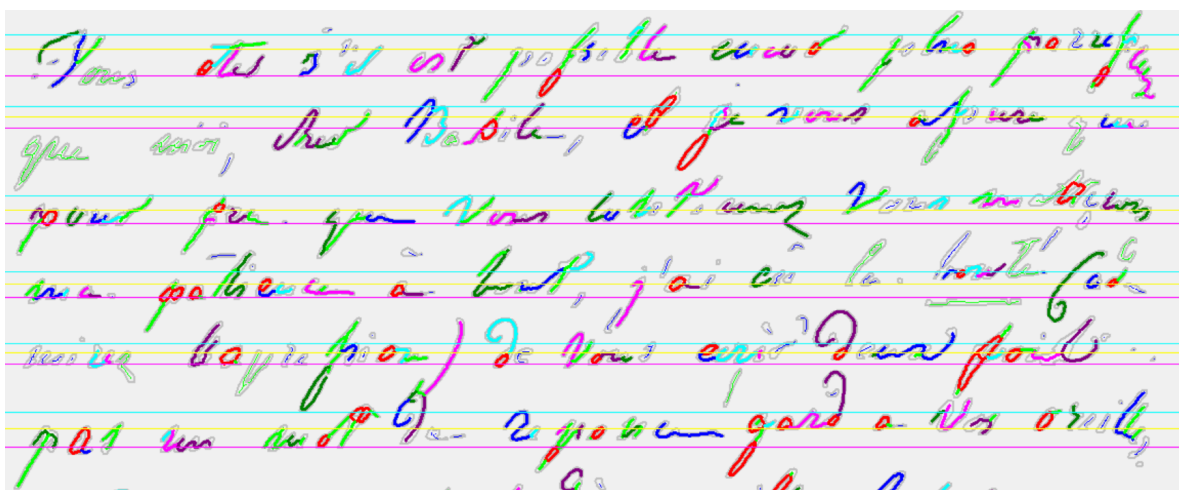 Vous etes s'il est possible encor plus
que moi, cher Basile, et je vous assure que
pour peu que Vous Vous
ma patience à bout, j'ai eu la bonté (ad-
mirez l'expression) de Vous ecrire deux fois
pas un mot de reponse gard a Vos oreilles,